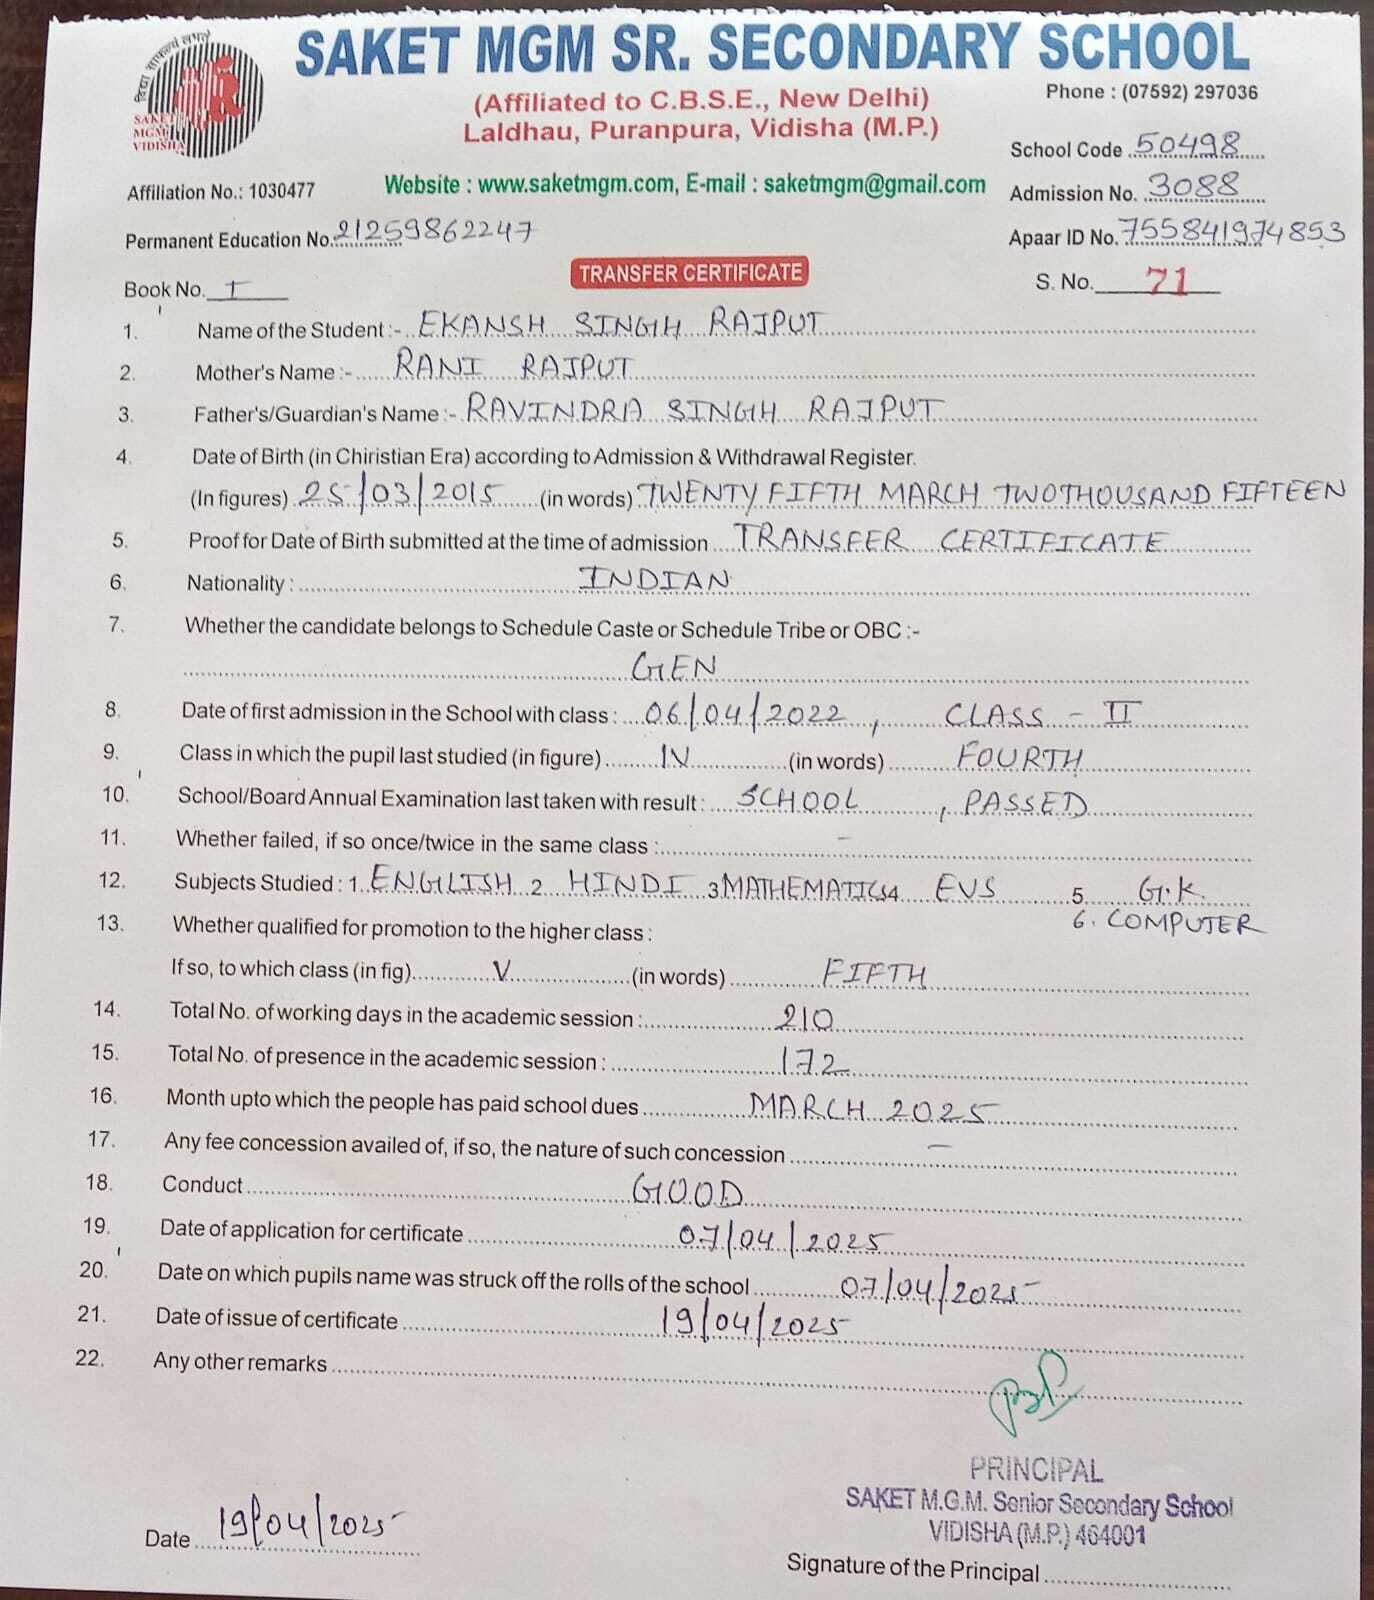 विद्या साफल्यं लभते
SAKET
MGM
VIDISHA
SAKET MGM SR. SECONDARY SCHOOL
(Affiliated to C.B.S.E., New Delhi)
Phone : (07592) 297036
Laldhau, Puranpura, Vidisha (M.P.)
School Code 50498
Affiliation No.: 1030477
Website : www.saketmgm.com, E-mail : saketmgm@gmail.com
Admission No. 3088
Permanent Education No. 21259862247
Apaar ID No. 755841974853
Book No. I
TRANSFER CERTIFICATE
S. No. 71
1. Name of the Student :- EKANSH SINGH RAJPUT
2. Mother's Name :- RANI RAJPUT
3. Father's/Guardian's Name :- RAVINDRA SINGH RAJPUT
4. Date of Birth (in Chiristian Era) according to Admission & Withdrawal Register.
(In figures) 25/03/2015 (in words) TWENTY FIFTH MARCH TWOTHOUSAND FIFTEEN
5. Proof for Date of Birth submitted at the time of admission TRANSFER CERTIFICATE
6. Nationality : INDIAN
7. Whether the candidate belongs to Schedule Caste or Schedule Tribe or OBC :-
GEN
8. Date of first admission in the School with class : 06/04/2022, CLASS - II
9. Class in which the pupil last studied (in figure) IV (in words) FOURTH
10. School/Board Annual Examination last taken with result : SCHOOL, PASSED
11. Whether failed, if so once/twice in the same class : -
12. Subjects Studied : 1 ENGLISH 2 HINDI 3 MATHEMATICS 4 EVS 5 G.K.
6. COMPUTER
13. Whether qualified for promotion to the higher class :
If so, to which class (in fig) V (in words) FIFTH
14. Total No. of working days in the academic session : 210
15. Total No. of presence in the academic session : 172
16. Month upto which the people has paid school dues MARCH 2025
17. Any fee concession availed of, if so, the nature of such concession -
18. Conduct GOOD
19. Date of application for certificate 07/04/2025
20. Date on which pupils name was struck off the rolls of the school 07/04/2025
21. Date of issue of certificate 19/04/2025
22. Any other remarks
PRINCIPAL
SAKET M.G.M. Senior Secondary School
VIDISHA (M.P.) 464001
Date 19/04/2025
Signature of the Principal